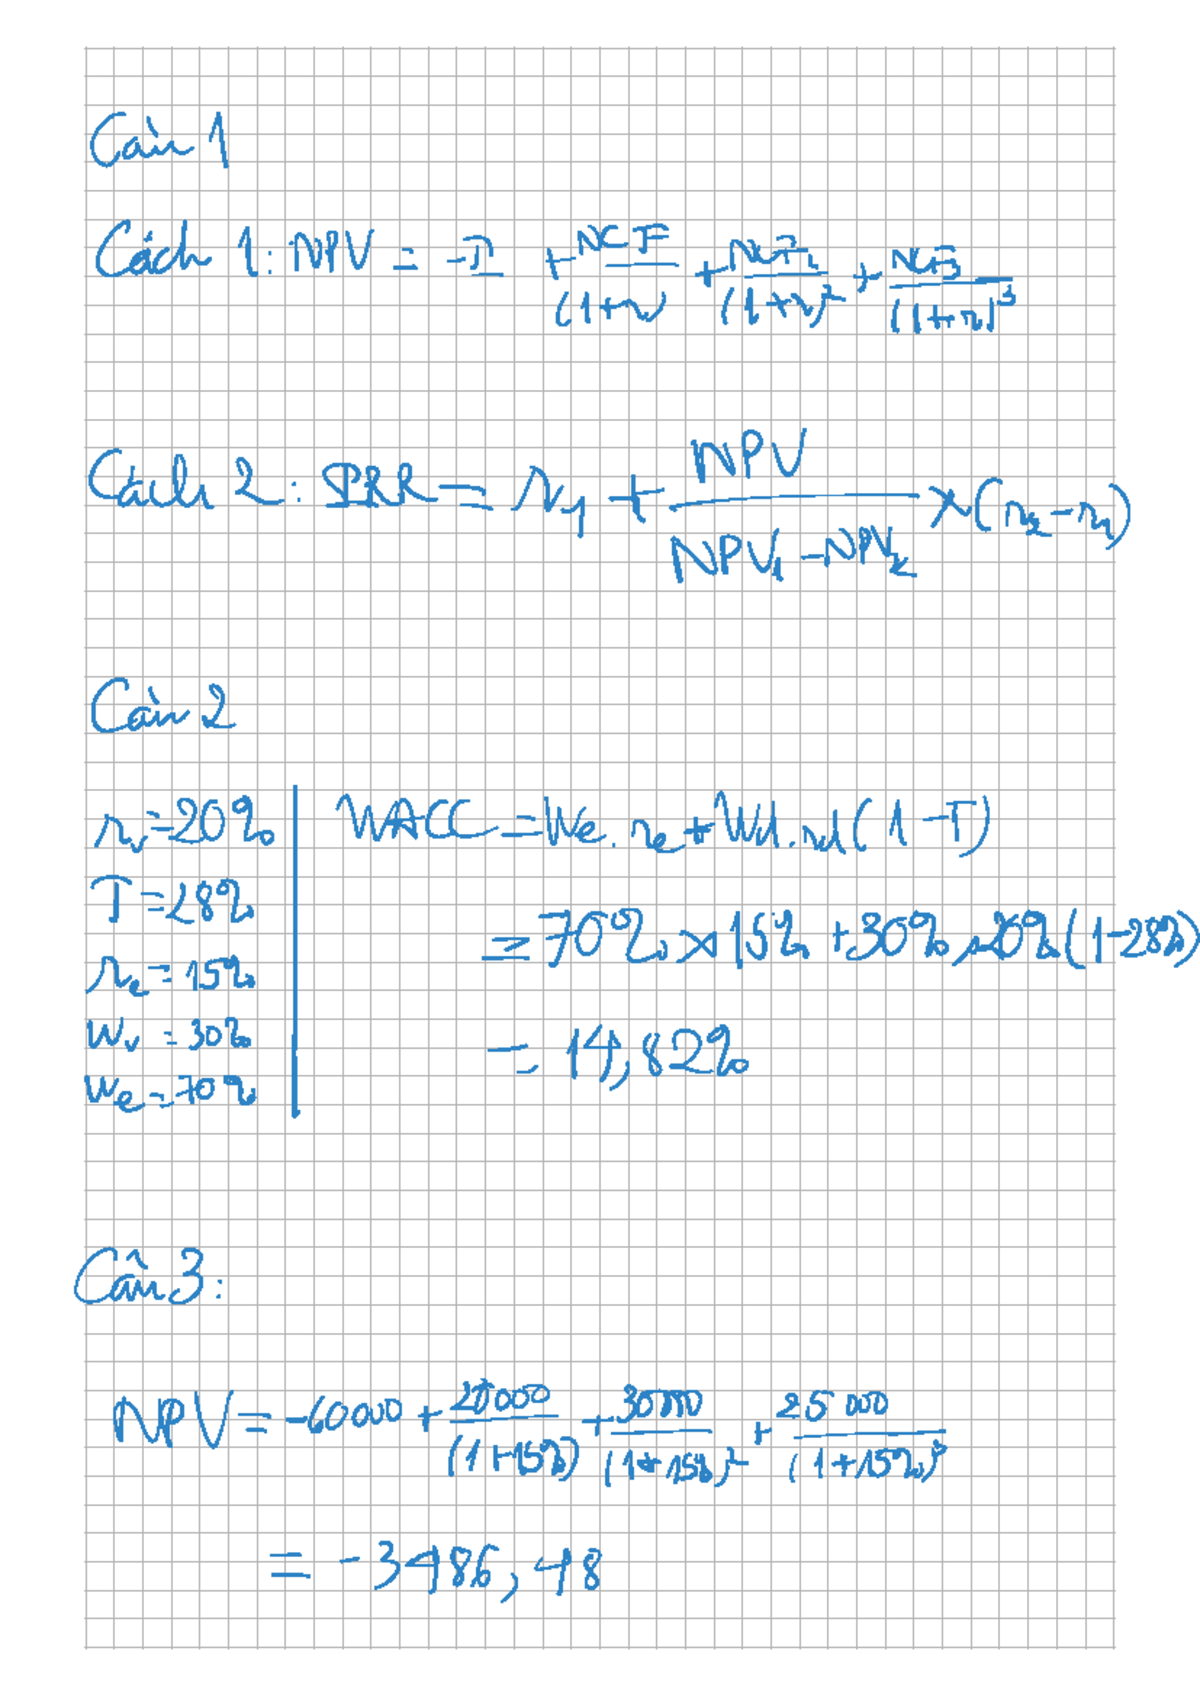 Câu 1
Cách 1: NPV = -I + NCF/(1+r) + NCF2/(1+r)^2 + NCF3/(1+r)^3
Cách 2: IRR = r1 + NPV/(NPV1 - NPV2) × (r2 - r1)
Câu 2
rv = 20%
T = 28%
re = 15%
Wv = 30%
We = 70%
WACC = We.re + Wd.rd(1-T)
= 70% × 15% + 30% × 20% (1-28%)
= 14,82%
Câu 3:
NPV = -60000 + 20000/(1+15%) + 30000/(1+15%)^2 + 25000/(1+15%)^3
= -3486,48